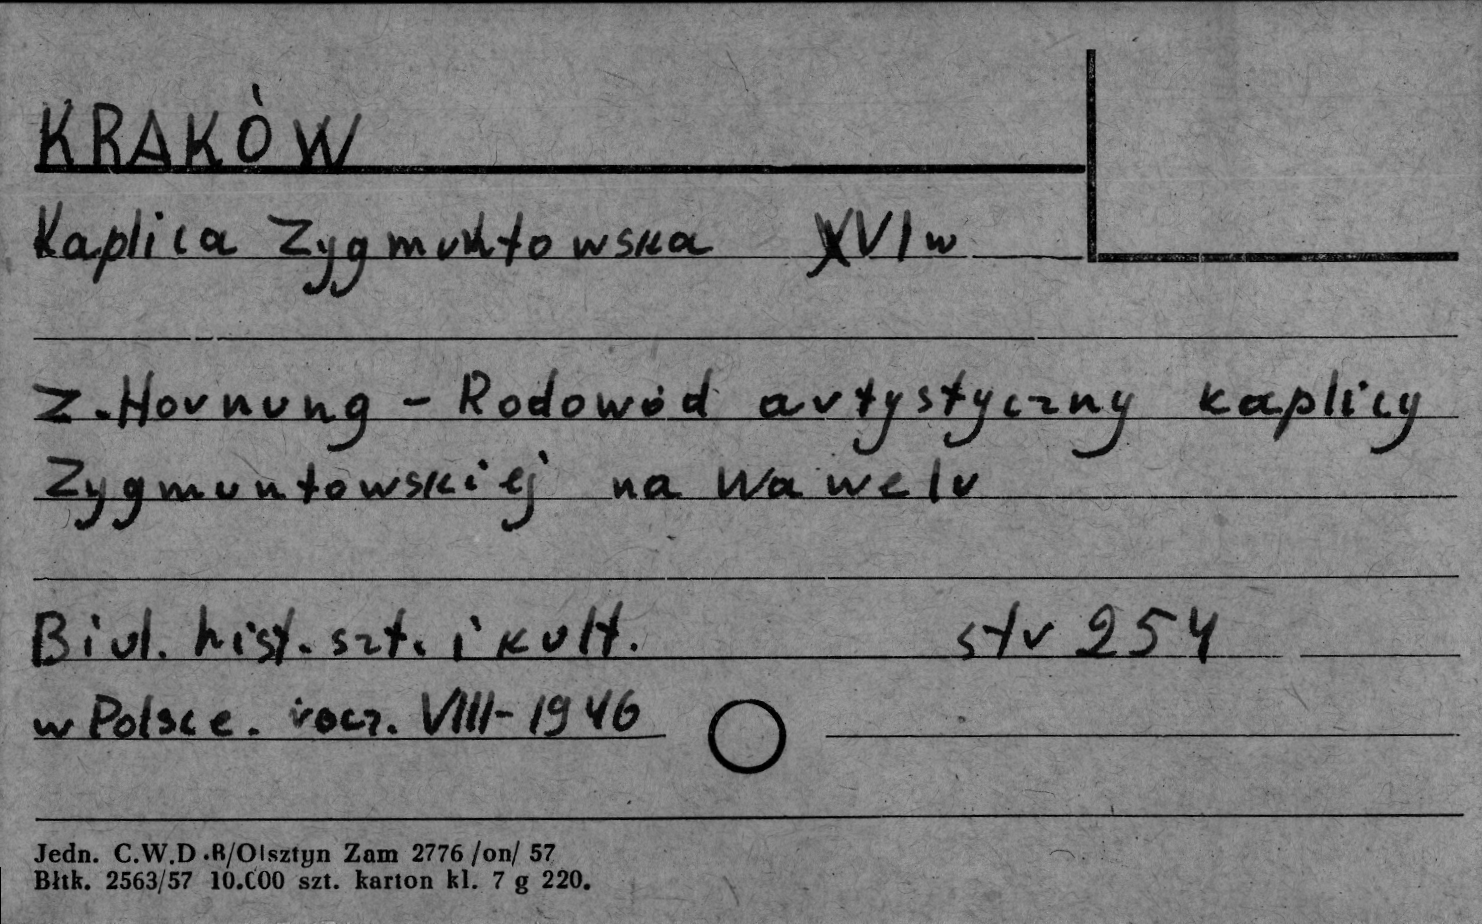 KRAKÓW
Kaplica Zygmuntowska XVI w
Z. Hornung - Rodowód artystyczny kaplicy
Zygmuntowskiej na Wawelu
Biul. hist. szt. i kult. str 254
w Polsce. rocz. VIII - 1946
Jedn. C.W.D.R/Olsztyn Zam 2776 /on/ 57
Błtk. 2563/57 10.000 szt. karton kl. 7 g 220.